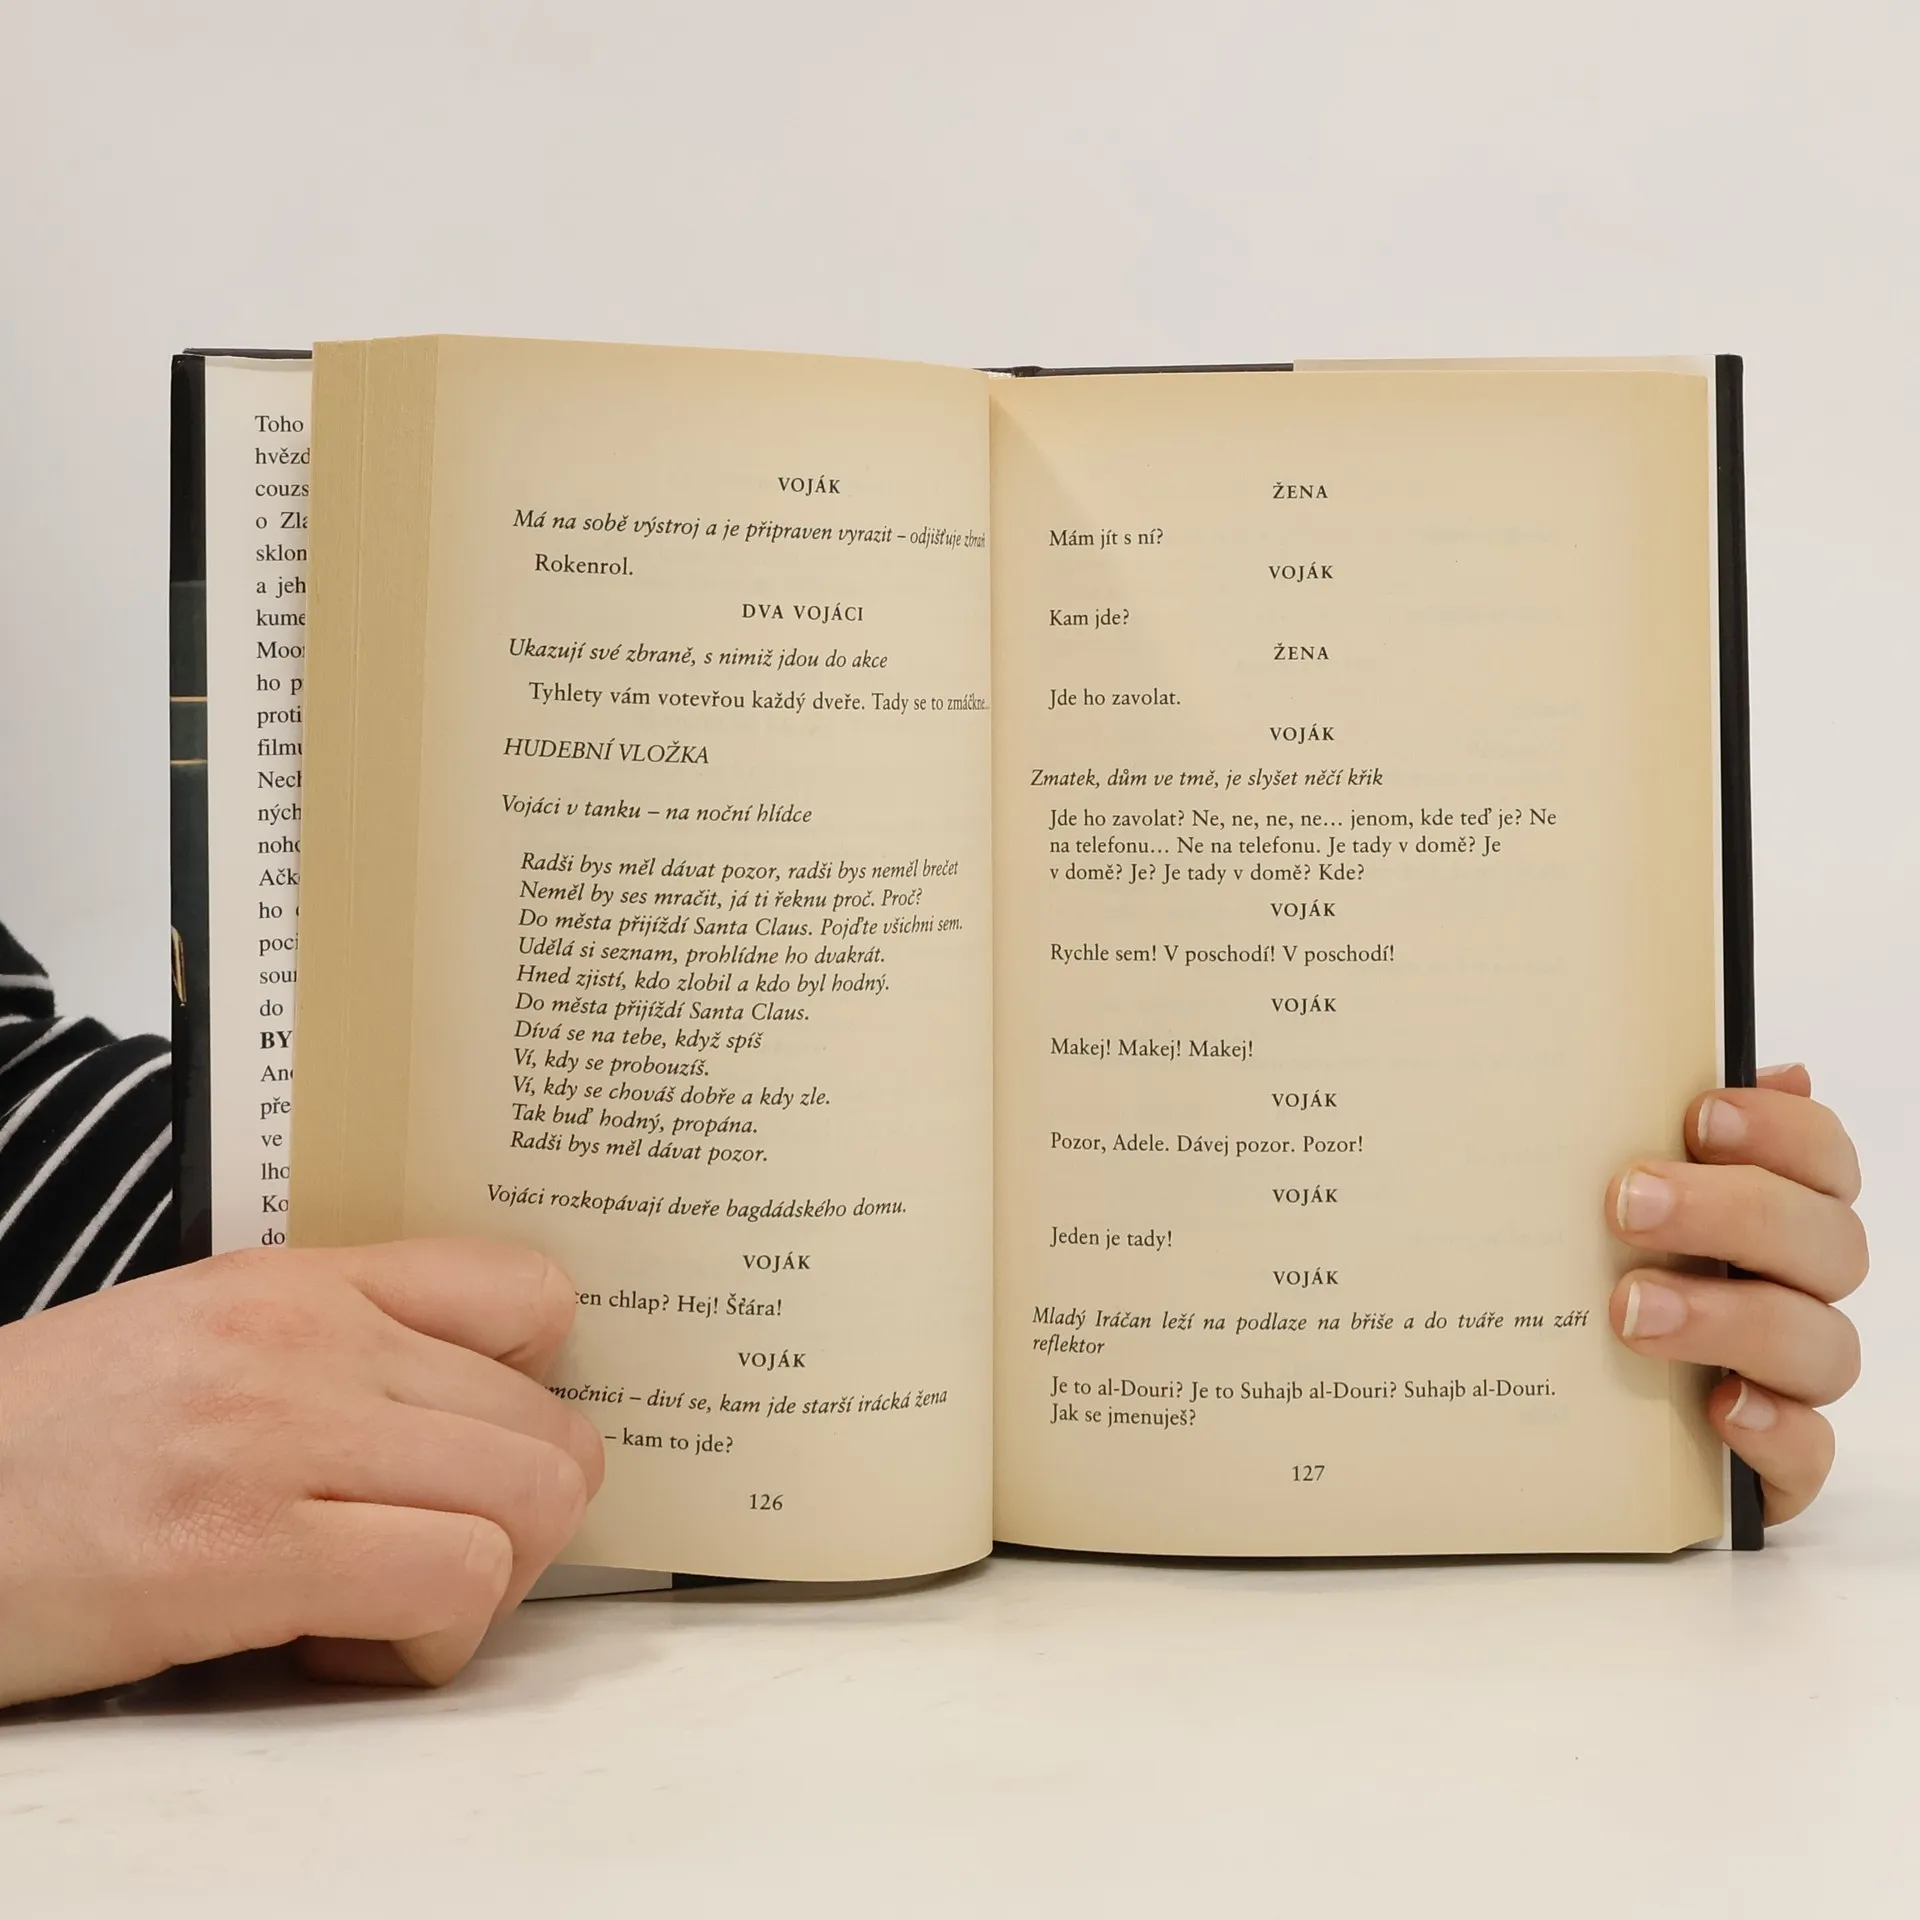 Toho
o
a jeh
ho
do
BY
ve
do
VOJÁK
Má na sobě výstroj a je připraven vyrazit – odjišťuje zbraň
Rokenrol.
DVA VOJÁCI
Ukazují své zbraně, s nimiž jdou do akce
Tyhlety vám votevřou každý dveře. Tady se to zmáčkne...
HUDEBNÍ VLOŽKA
Vojáci v tanku – na noční hlídce
Radši bys měl dávat pozor, radši bys neměl brečet
Neměl by ses mračit, já ti řeknu proč. Proč?
Do města přijíždí Santa Claus. Pojďte všichni sem.
Udělá si seznam, prohlídne ho dvakrát.
Hned zjistí, kdo zlobil a kdo byl hodný.
Do města přijíždí Santa Claus.
Dívá se na tebe, když spíš
Ví, kdy se probouzíš.
Ví, kdy se chováš dobře a kdy zle.
Tak buď hodný, propána.
Radši bys měl dávat pozor.
Vojáci rozkopávají dveře bagdádského domu.
VOJÁK
ten chlap? Hej! Šťára!
VOJÁK
močnici – diví se, kam jde starší irácká žena
– kam to jde?
126
ŽENA
Mám jít s ní?
VOJÁK
Kam jde?
ŽENA
Jde ho zavolat.
VOJÁK
Zmatek, dům ve tmě, je slyšet něčí křik
Jde ho zavolat? Ne, ne, ne, ne... jenom, kde teď je? Ne
na telefonu... Ne na telefonu. Je tady v domě? Je
v domě? Je? Je tady v domě? Kde?
VOJÁK
Rychle sem! V poschodí! V poschodí!
VOJÁK
Makej! Makej! Makej!
VOJÁK
Pozor, Adele. Dávej pozor. Pozor!
VOJÁK
Jeden je tady!
VOJÁK
Mladý Iráčan leží na podlaze na břiše a do tváře mu září
reflektor
Je to al-Douri? Je to Suhajb al-Douri? Suhajb al-Douri.
Jak se jmenuješ?
127